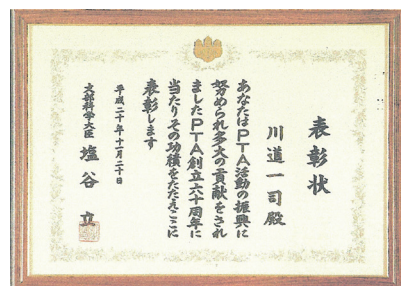 表彰状
川道一司殿
あなたはPTA活動の振興に
努められ多大の貢献をされ
ましたPTA創立六十周年に
当たりその功績をたたえここに
表彰します
平成二十年十一月二十日
文部科学大臣 塩谷立